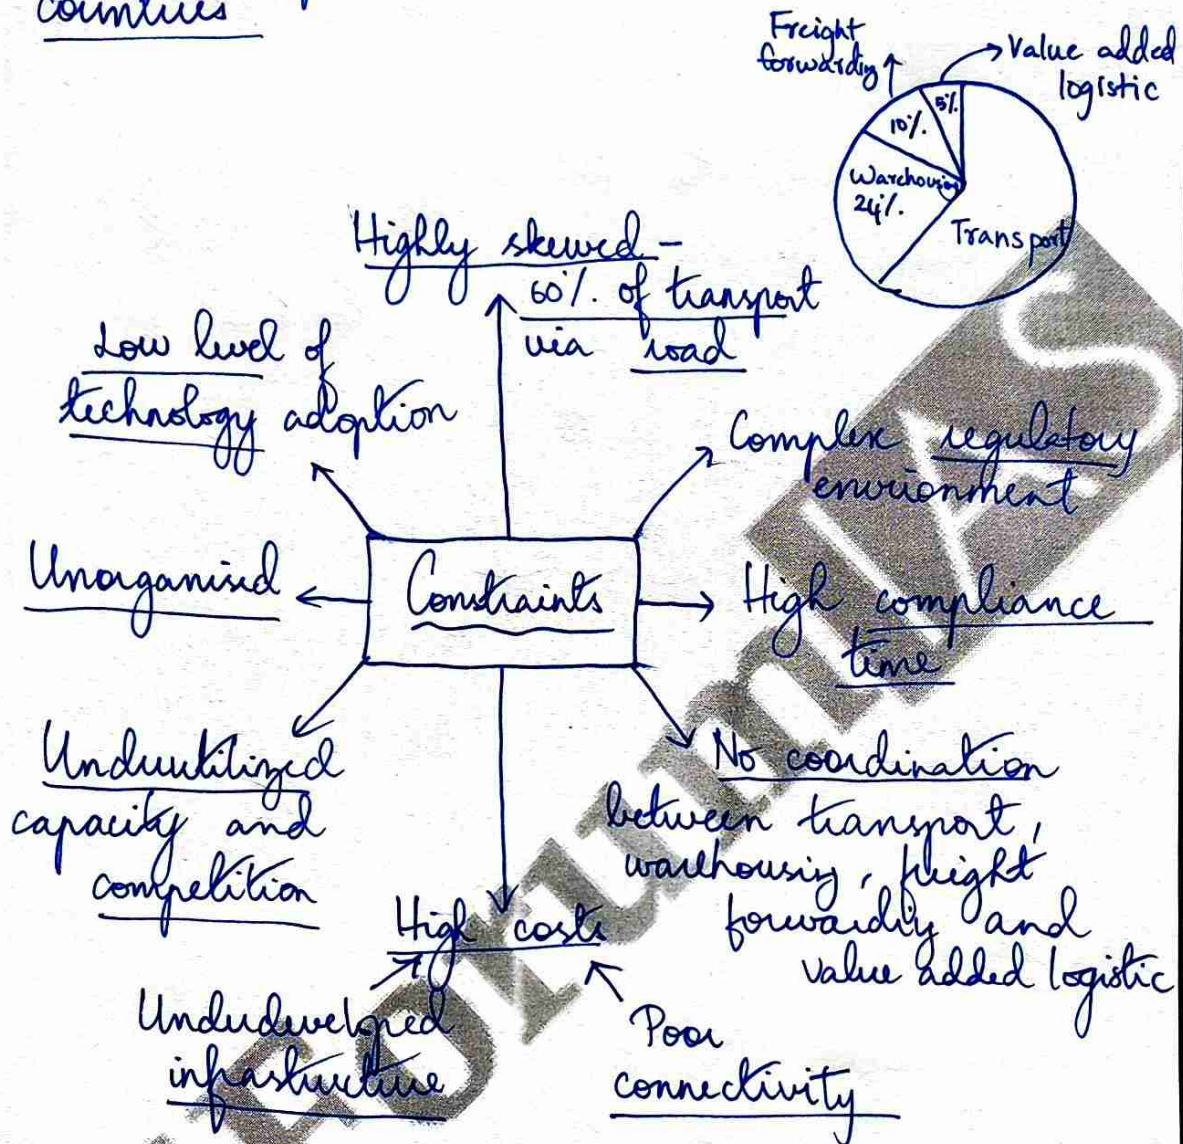 countries
Freight
forwarding
Value added
logistic
5%
10%.
Warehousing
24%.
Transport
Highly skewed -
60%. of transport
via road
Low level of
technology adoption
Complex regulatory
environment
Unorganised
Constraints
High compliance
time
Underutilized
capacity and
competition
No coordination
between transport,
warehousing, freight
forwarding and
value added logistic
High costs
Underdeveloped
infrastructure
Poor
connectivity
ForumIAS